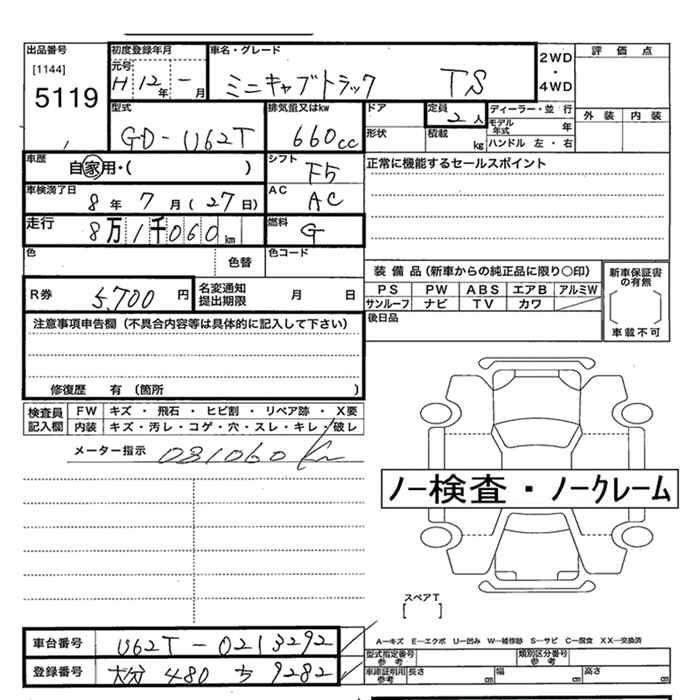 出品番号 初度登録年月 車名・グレード 2WD・4WD 評価点
[1144] 元号
5119 H 12年 ー月 ミニキャブトラック TS
型式 排気量又はkw ドア 定員 ディーラー・並行 外装 内装
GD-U62T 660cc 形状 2人 モデル年式 年
積載 kg ハンドル 左・右
車歴 シフト 正常に機能するセールスポイント
自家用・( ) F5
車検満了日 AC
8年 7月(27日) AC
走行 燃料
8万1千060km G
色 色替 色コード
装備品(新車からの純正品に限り○印) 新車保証書の有無
R券 5,700円 名変通知提出期限 月 日 PS PW ABS エアB アルミW
サンルーフ ナビ TV カワ
注意事項申告欄(不具合内容等は具体的に記入して下さい) 後日品 車載不可
修復歴 有(箇所 )
検査員記入欄 FW キズ・飛石・ヒビ割・リペア跡・X要
内装 キズ・汚レ・コゲ・穴・スレ・キレ・破レ
メーター指示 081060Km
ノー検査・ノークレーム
スペアT
[ ]
A―キズ E―エクボ U―凹み W―補修跡 S―サビ C―腐食 XX―交換済
車台番号 U62T-0213292 型式指定番号 参考 類別区分番号 参考
登録番号 大分 480 ち 9282 車庫証明用 参考 長さ cm 幅 cm 高さ cm